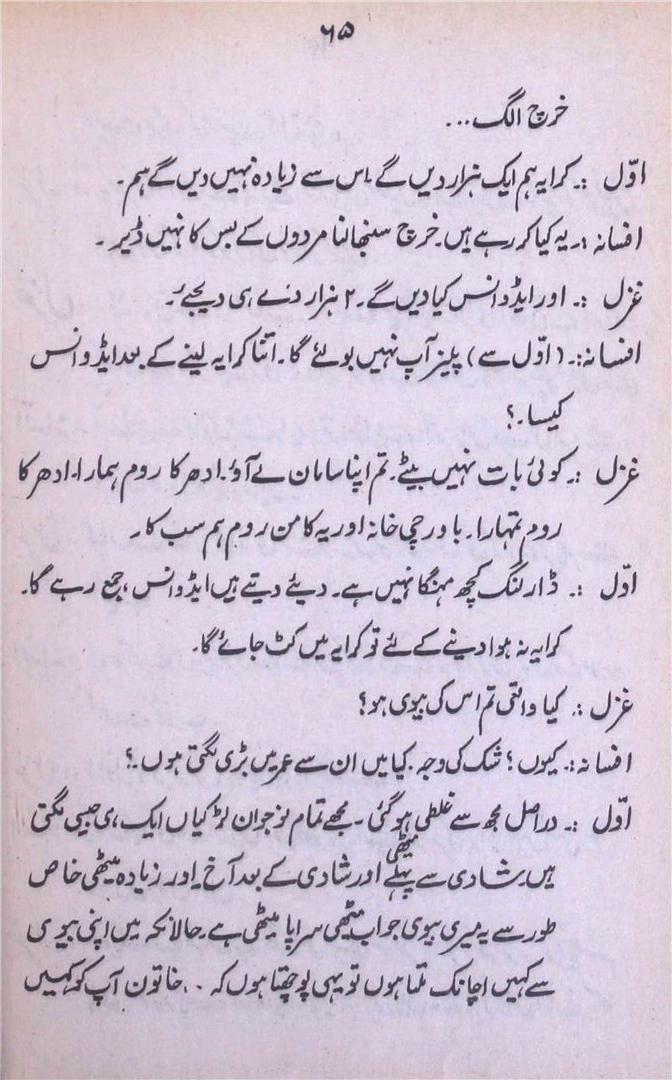 ۶۵
خرچ الگ...
اوّل :۔ کرایہ ہم ایک ہزار دیں گے۔ اس سے زیادہ نہیں دیں گے ہم۔
افسانہ :۔ یہ کیا کر رہے ہیں۔ خرچ سنبھالنا مردوں کے بس کا نہیں ڈیر۔
غزل :۔ اور ایڈوانس کیا دیں گے۔ ۲ ہزار دے ہی دیجئے۔
افسانہ :۔ (اوّل سے) پلیز آپ نہیں بولئے گا۔ اتنا کرایہ لینے کے بعد ایڈوانس
کیسا۔؟
غزل :۔ کوئی بات نہیں بیٹے۔ تم اپنا سامان لے آؤ۔ ادھر کا روم ہمارا۔ ادھر کا
روم تمہارا۔ باورچی خانہ اور یہ کامن روم ہم سب کا۔
اوّل :۔ ڈارلنگ کچھ مہنگا نہیں ہے۔ دیئے دیتے ہیں ایڈوانس، جمع رہے گا۔
کرایہ نہ ہوا دینے کے لئے تو کرایہ میں کٹ جائے گا۔
غزل :۔ کیا واقعی تم اس کی بیوی ہو؟
افسانہ :۔ کیوں؟ شک کی وجہ۔ کیا میں ان سے عمر میں بڑی لگتی ہوں۔؟
اوّل :۔ دراصل مجھ سے غلطی ہو گئی۔ مجھے تمام نوجوان لڑکیاں ایک ہی جیسی لگتی
ہیں۔ شادی سے پہلے میٹھی اور شادی کے بعد آخ۔ اور زیادہ میٹھی خاص
طور سے یہ میری بیوی جو اب میٹھی سراپا میٹھی ہے۔ حالانکہ میں اپنی بیوی
سے کہیں اچانک ملتا ہوں تو یہی پوچھتا ہوں کہ .. خاتون آپ کو کہیں